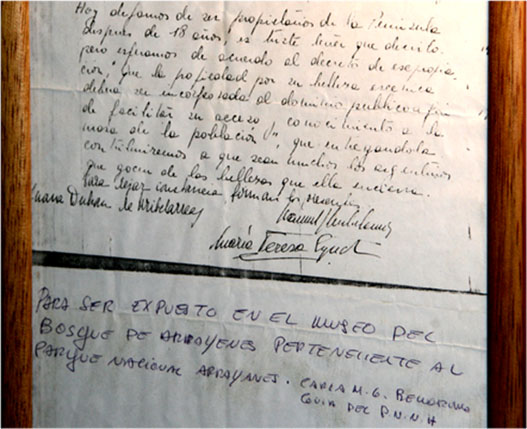 Hoy dejamos de ser propietarios de la Península
después de 18 años, es triste tener que decirlo.
pero esperamos de acuerdo al decreto de expropia
ción, "Que la propiedad por su belleza escenica
debía ser incorporada al dominio publico a fin
de facilitar su acceso y conocimiento a la
masa de la población", que entregandola
contribuiremos a que sean muchos los argentinos
que gocen de las bellezas que ella encierra.
Para dejar constancia firman los
Juana
María Teresa
PARA SER EXPUESTO EN EL MUSEO DEL
BOSQUE DE ARRAYENES PERTENECIENTE AL
PARQUE NACIONAL ARRAYANES. CARLA M. G.
GUIA DEL P.N.N.H